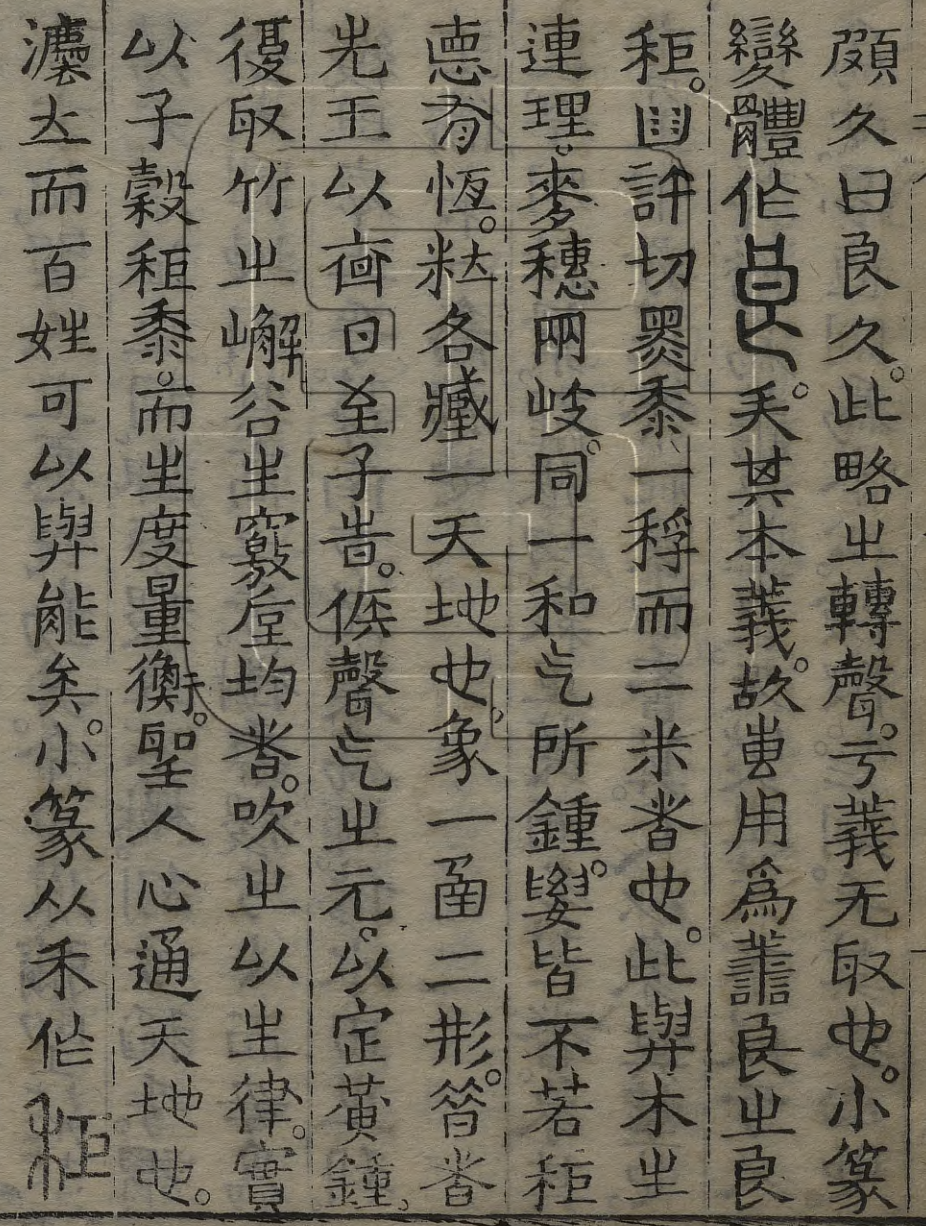 頗久曰良久。此略㞢轉聲。亏義无取也。小篆
變體作𥃩。失其本義。故叀用爲善良㞢良
秬。𥃩許切。黑黍一稃而二米者也。此與木㞢
連理。麥穗兩岐。同一和气所鍾。與皆不若秬
悳有恆。粒各臧一天地也。象一甬二形。昝者
先王以啇日至子旹。候聲气㞢元。以定黃鍾。
復取竹㞢嶰谷生竅厚均者。吹㞢以生律。實
以子穀秬黍。而生度量衡。聖人心通天地也。
灋立而百姓可以與能矣。小篆从禾作秬